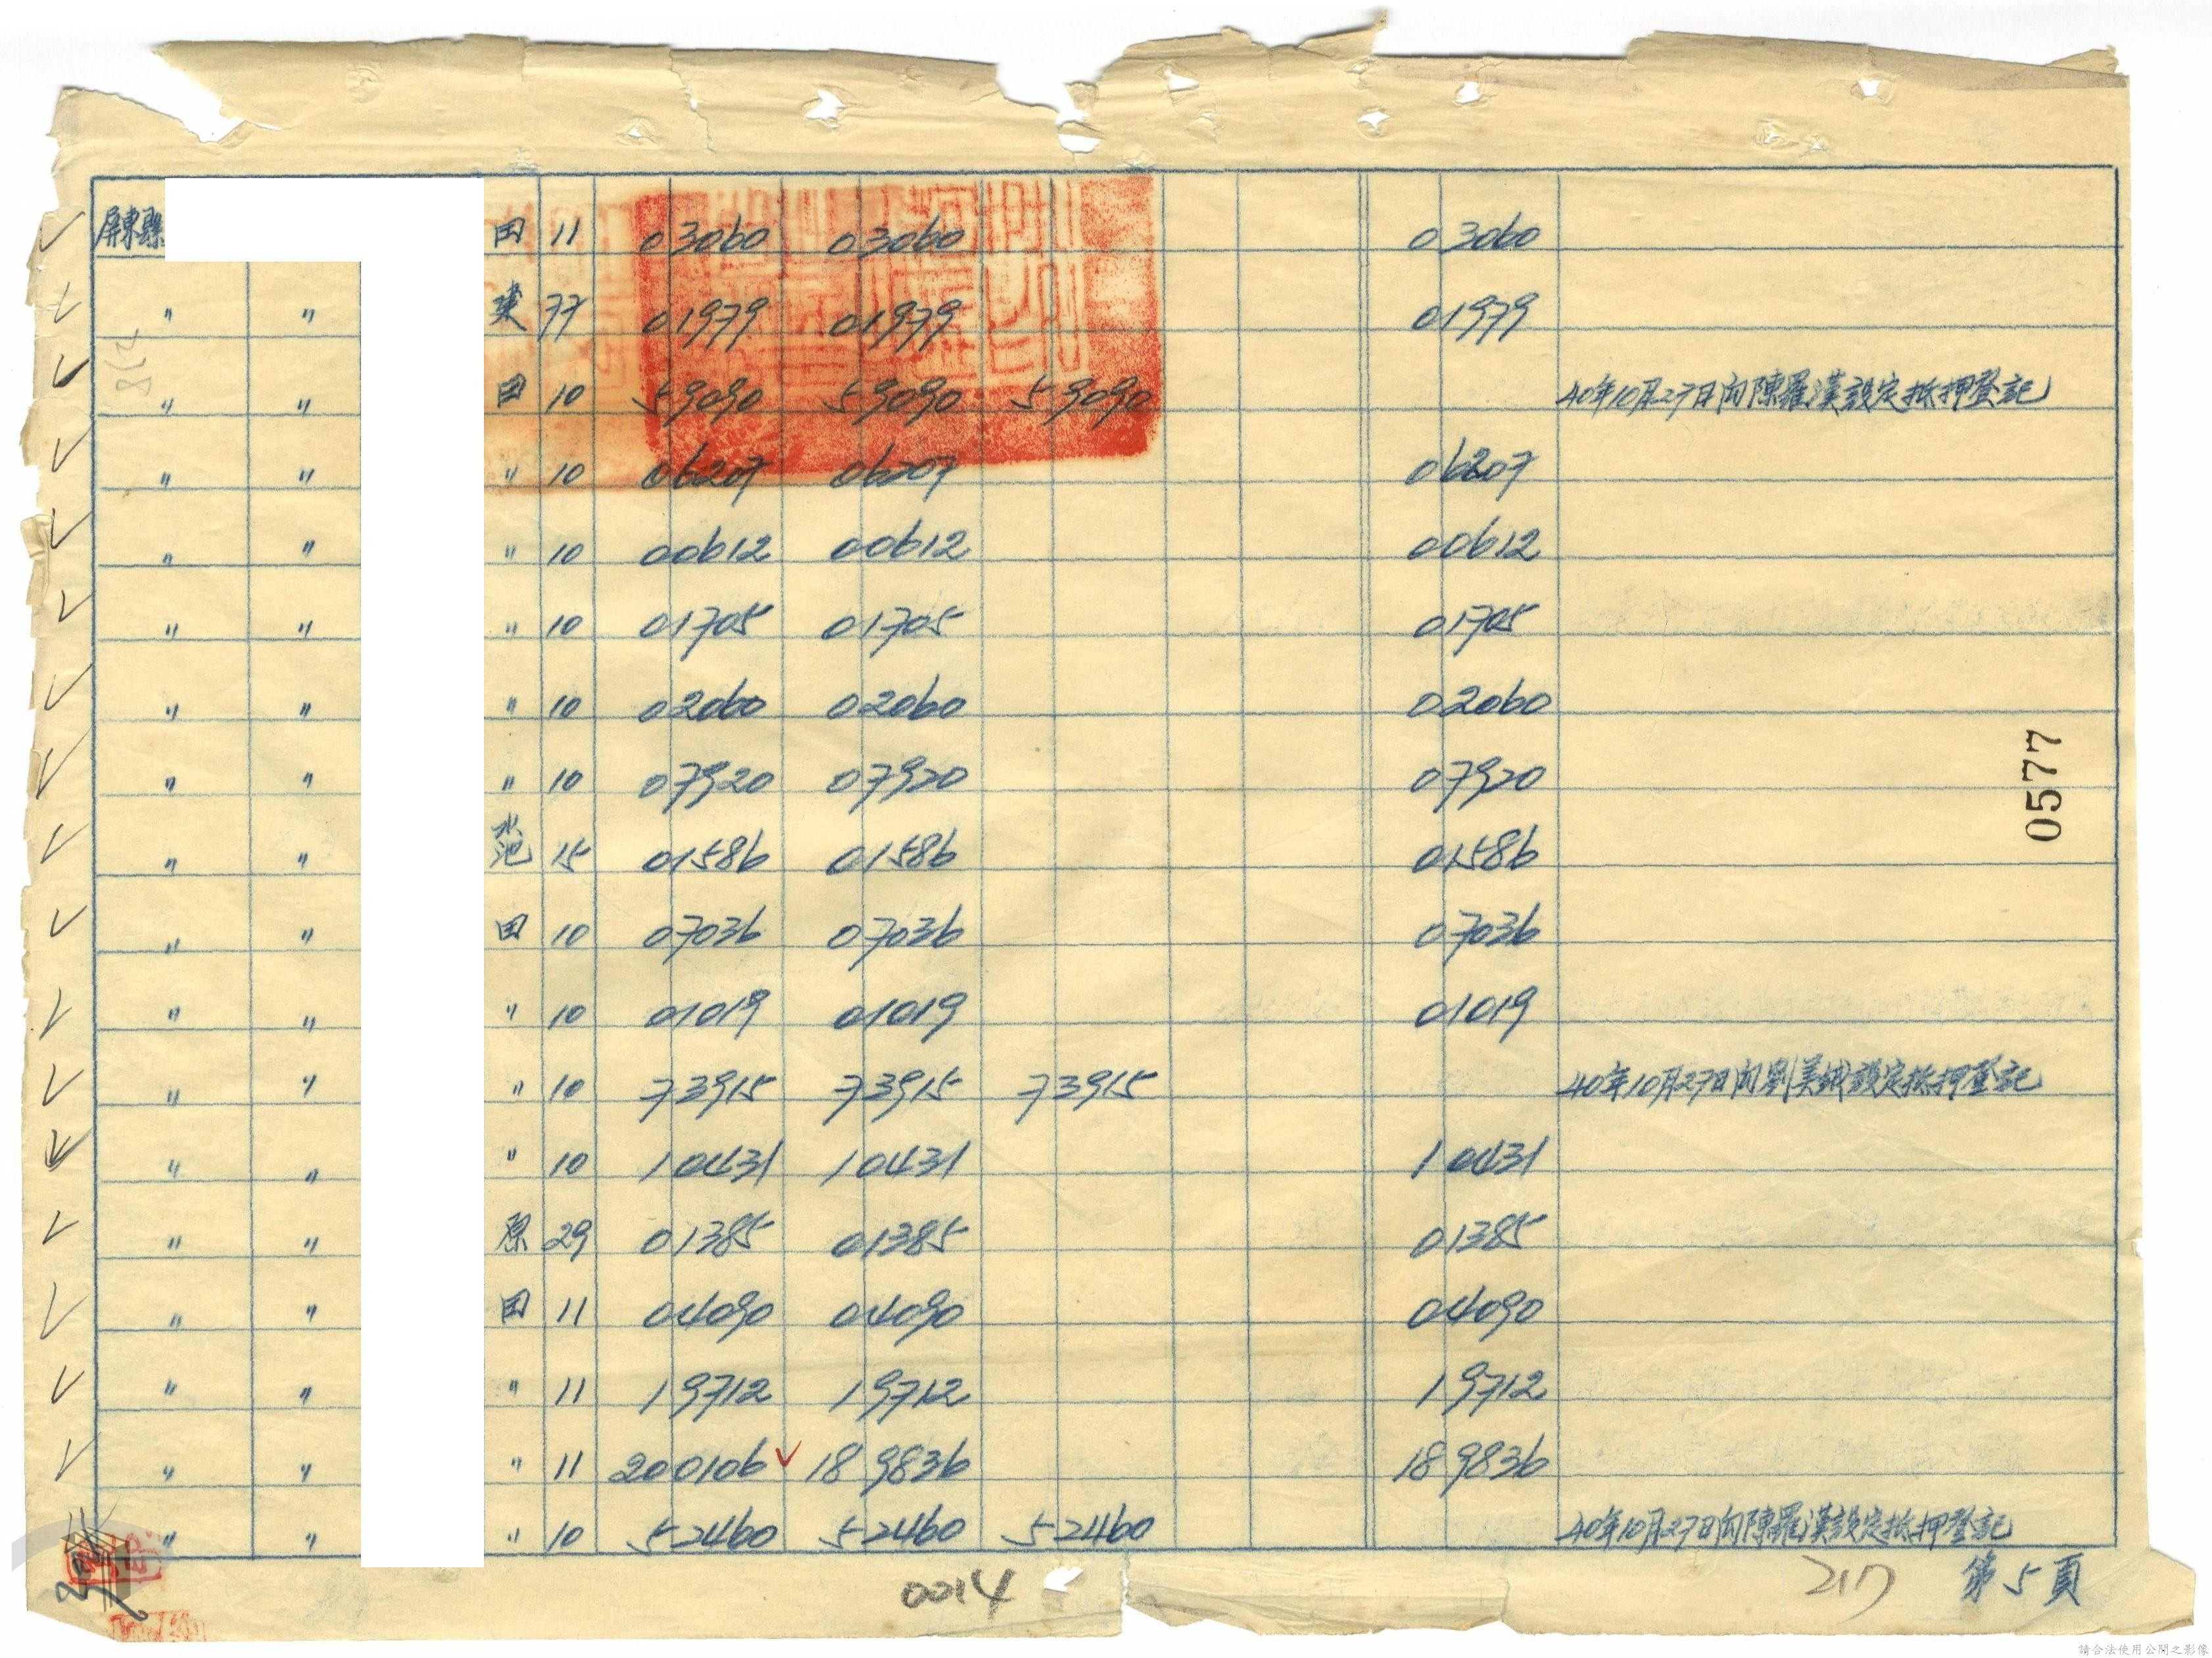 屏東縣 田 11 03060 03060 03060
〃 〃 建 77 01979 01979 01979
〃 〃 田 10 59090 59090 59090 40年10月27日向陳羅漢設定抵押登記
〃 〃 〃 10 06207 06207 06207
〃 〃 〃 10 00612 00612 00612
〃 〃 〃 10 01705 01705 01705
〃 〃 〃 10 02060 02060 02060
〃 〃 〃 10 07920 07920 07920
〃 〃 水池 15 01586 01586 01586
〃 〃 田 10 07036 07036 07036
〃 〃 〃 10 01019 01019 01019
〃 〃 〃 10 73915 73915 73915 40年10月27日向劉美設定抵押登記
〃 〃 〃 10 10431 10431 10431
〃 〃 原 29 01385 01385 01385
〃 〃 田 11 04090 04090 04090
〃 〃 〃 11 19712 19712 19712
〃 〃 〃 11 200106 189836 189836
〃 〃 〃 10 52460 52460 52460 40年10月27日向陳羅漢設定抵押登記
218
0577
0014
217 第5頁
請合法使用公開之影像